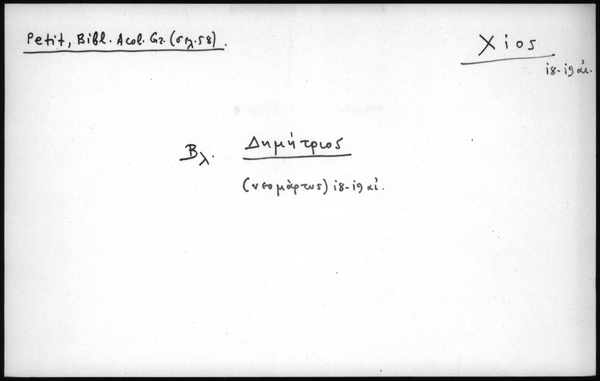 Petit, Bibl. Acol. Gr. (σελ. 58).
Χίος
18-19 αἰ.
Βλ. Δημήτριος
(νεομάρτυς) 18-19 αἰ.